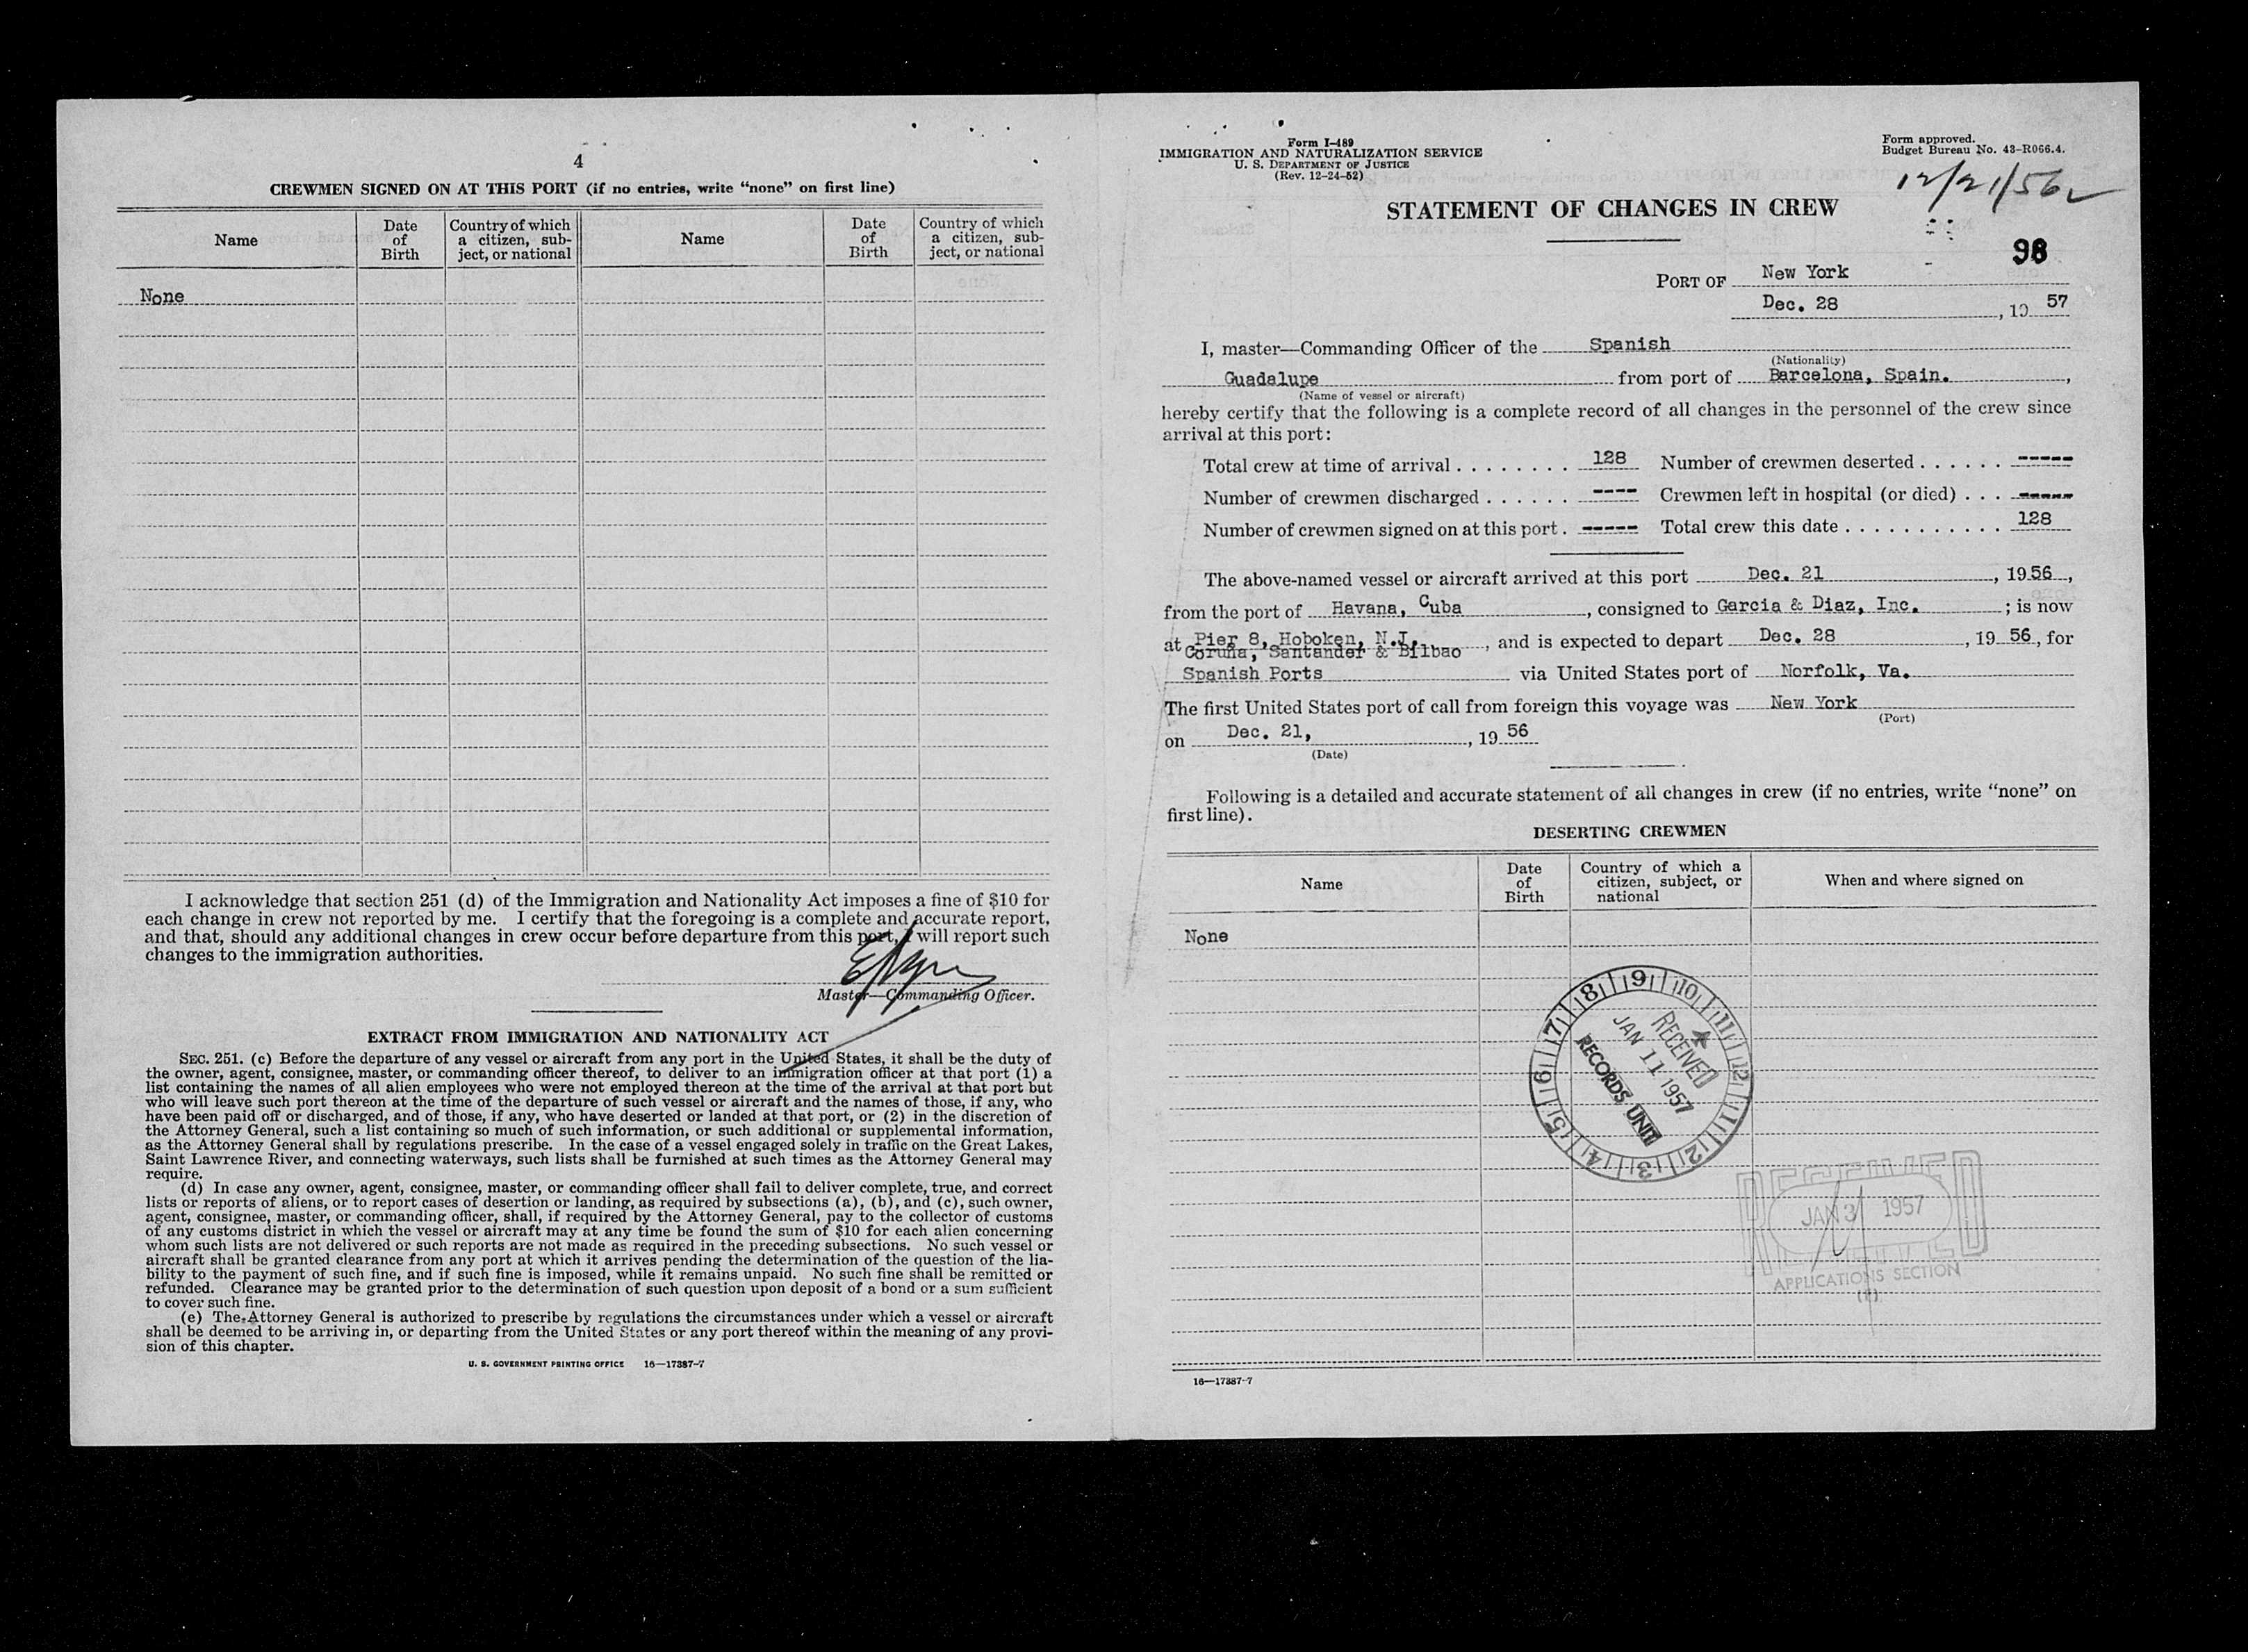 4
CREWMEN SIGNED ON AT THIS PORT (if no entries, write "none" on first line)
Name
Date of Birth
Country of which a citizen, sub-ject, or national
Name
Date of Birth
Country of which a citizen, sub-ject, or national
None
I acknowledge that section 251 (d) of the Immigration and Nationality Act imposes a fine of $10 for
each change in crew not reported by me. I certify that the foregoing is a complete and accurate report,
and that, should any additional changes in crew occur before departure from this port, I will report such
changes to the immigration authorities.
Master—Commanding Officer.
EXTRACT FROM IMMIGRATION AND NATIONALITY ACT
SEC. 251. (c) Before the departure of any vessel or aircraft from any port in the United States, it shall be the duty of
the owner, agent, consignee, master, or commanding officer thereof, to deliver to an immigration officer at that port (1) a
list containing the names of all alien employees who were not employed thereon at the time of the arrival at that port but
who will leave such port thereon at the time of the departure of such vessel or aircraft and the names of those, if any, who
have been paid off or discharged, and of those, if any, who have deserted or landed at that port, or (2) in the discretion of
the Attorney General, such a list containing so much of such information, or such additional or supplemental information,
as the Attorney General shall by regulations prescribe. In the case of a vessel engaged solely in traffic on the Great Lakes,
Saint Lawrence River, and connecting waterways, such lists shall be furnished at such times as the Attorney General may
require.
(d) In case any owner, agent, consignee, master, or commanding officer shall fail to deliver complete, true, and correct
lists or reports of aliens, or to report cases of desertion or landing, as required by subsections (a), (b), and (c), such owner,
agent, consignee, master, or commanding officer, shall, if required by the Attorney General, pay to the collector of customs
of any customs district in which the vessel or aircraft may at any time be found the sum of $10 for each alien concerning
whom such lists are not delivered or such reports are not made as required in the preceding subsections. No such vessel or
aircraft shall be granted clearance from any port at which it arrives pending the determination of the question of the lia-
bility to the payment of such fine, and if such fine is imposed, while it remains unpaid. No such fine shall be remitted or
refunded. Clearance may be granted prior to the determination of such question upon deposit of a bond or a sum sufficient
to cover such fine.
(e) The Attorney General is authorized to prescribe by regulations the circumstances under which a vessel or aircraft
shall be deemed to be arriving in, or departing from the United States or any port thereof within the meaning of any provi-
sion of this chapter.
U. S. GOVERNMENT PRINTING OFFICE 16—17387-7
Form I-489
IMMIGRATION AND NATURALIZATION SERVICE
U. S. DEPARTMENT OF JUSTICE
(Rev. 12-24-52)
Form approved.
Budget Bureau No. 43-R066.4.
12/21/56
STATEMENT OF CHANGES IN CREW
98
PORT OF New York
Dec. 28, 19 57
I, master—Commanding Officer of the Spanish
(Nationality)
Guadalupe from port of Barcelona, Spain.,
(Name of vessel or aircraft)
hereby certify that the following is a complete record of all changes in the personnel of the crew since
arrival at this port:
Total crew at time of arrival . . . . . . . . 128 Number of crewmen deserted . . . . . . -----
Number of crewmen discharged . . . . . . ---- Crewmen left in hospital (or died) . . . -----
Number of crewmen signed on at this port . ----- Total crew this date . . . . . . . . . . . 128
The above-named vessel or aircraft arrived at this port Dec. 21, 1956,
from the port of Havana, Cuba, consigned to Garcia & Diaz, Inc. ; is now
at Pier 8, Hoboken, N.J., and is expected to depart Dec. 28, 19 56, for
Coruña, Santander & Bilbao
Spanish Ports via United States port of Norfolk, Va.
The first United States port of call from foreign this voyage was New York
(Port)
on Dec. 21,, 19 56
(Date)
Following is a detailed and accurate statement of all changes in crew (if no entries, write "none" on
first line).
DESERTING CREWMEN
Name
Date of Birth
Country of which a citizen, subject, or national
When and where signed on
None
8 9 10 11 12 1 2 3 4 5 6 7
RECEIVED
JAN 11 1957
RECORDS UNIT
RECEIVED
JAN 3 1957
APPLICATIONS SECTION
16—17387-7